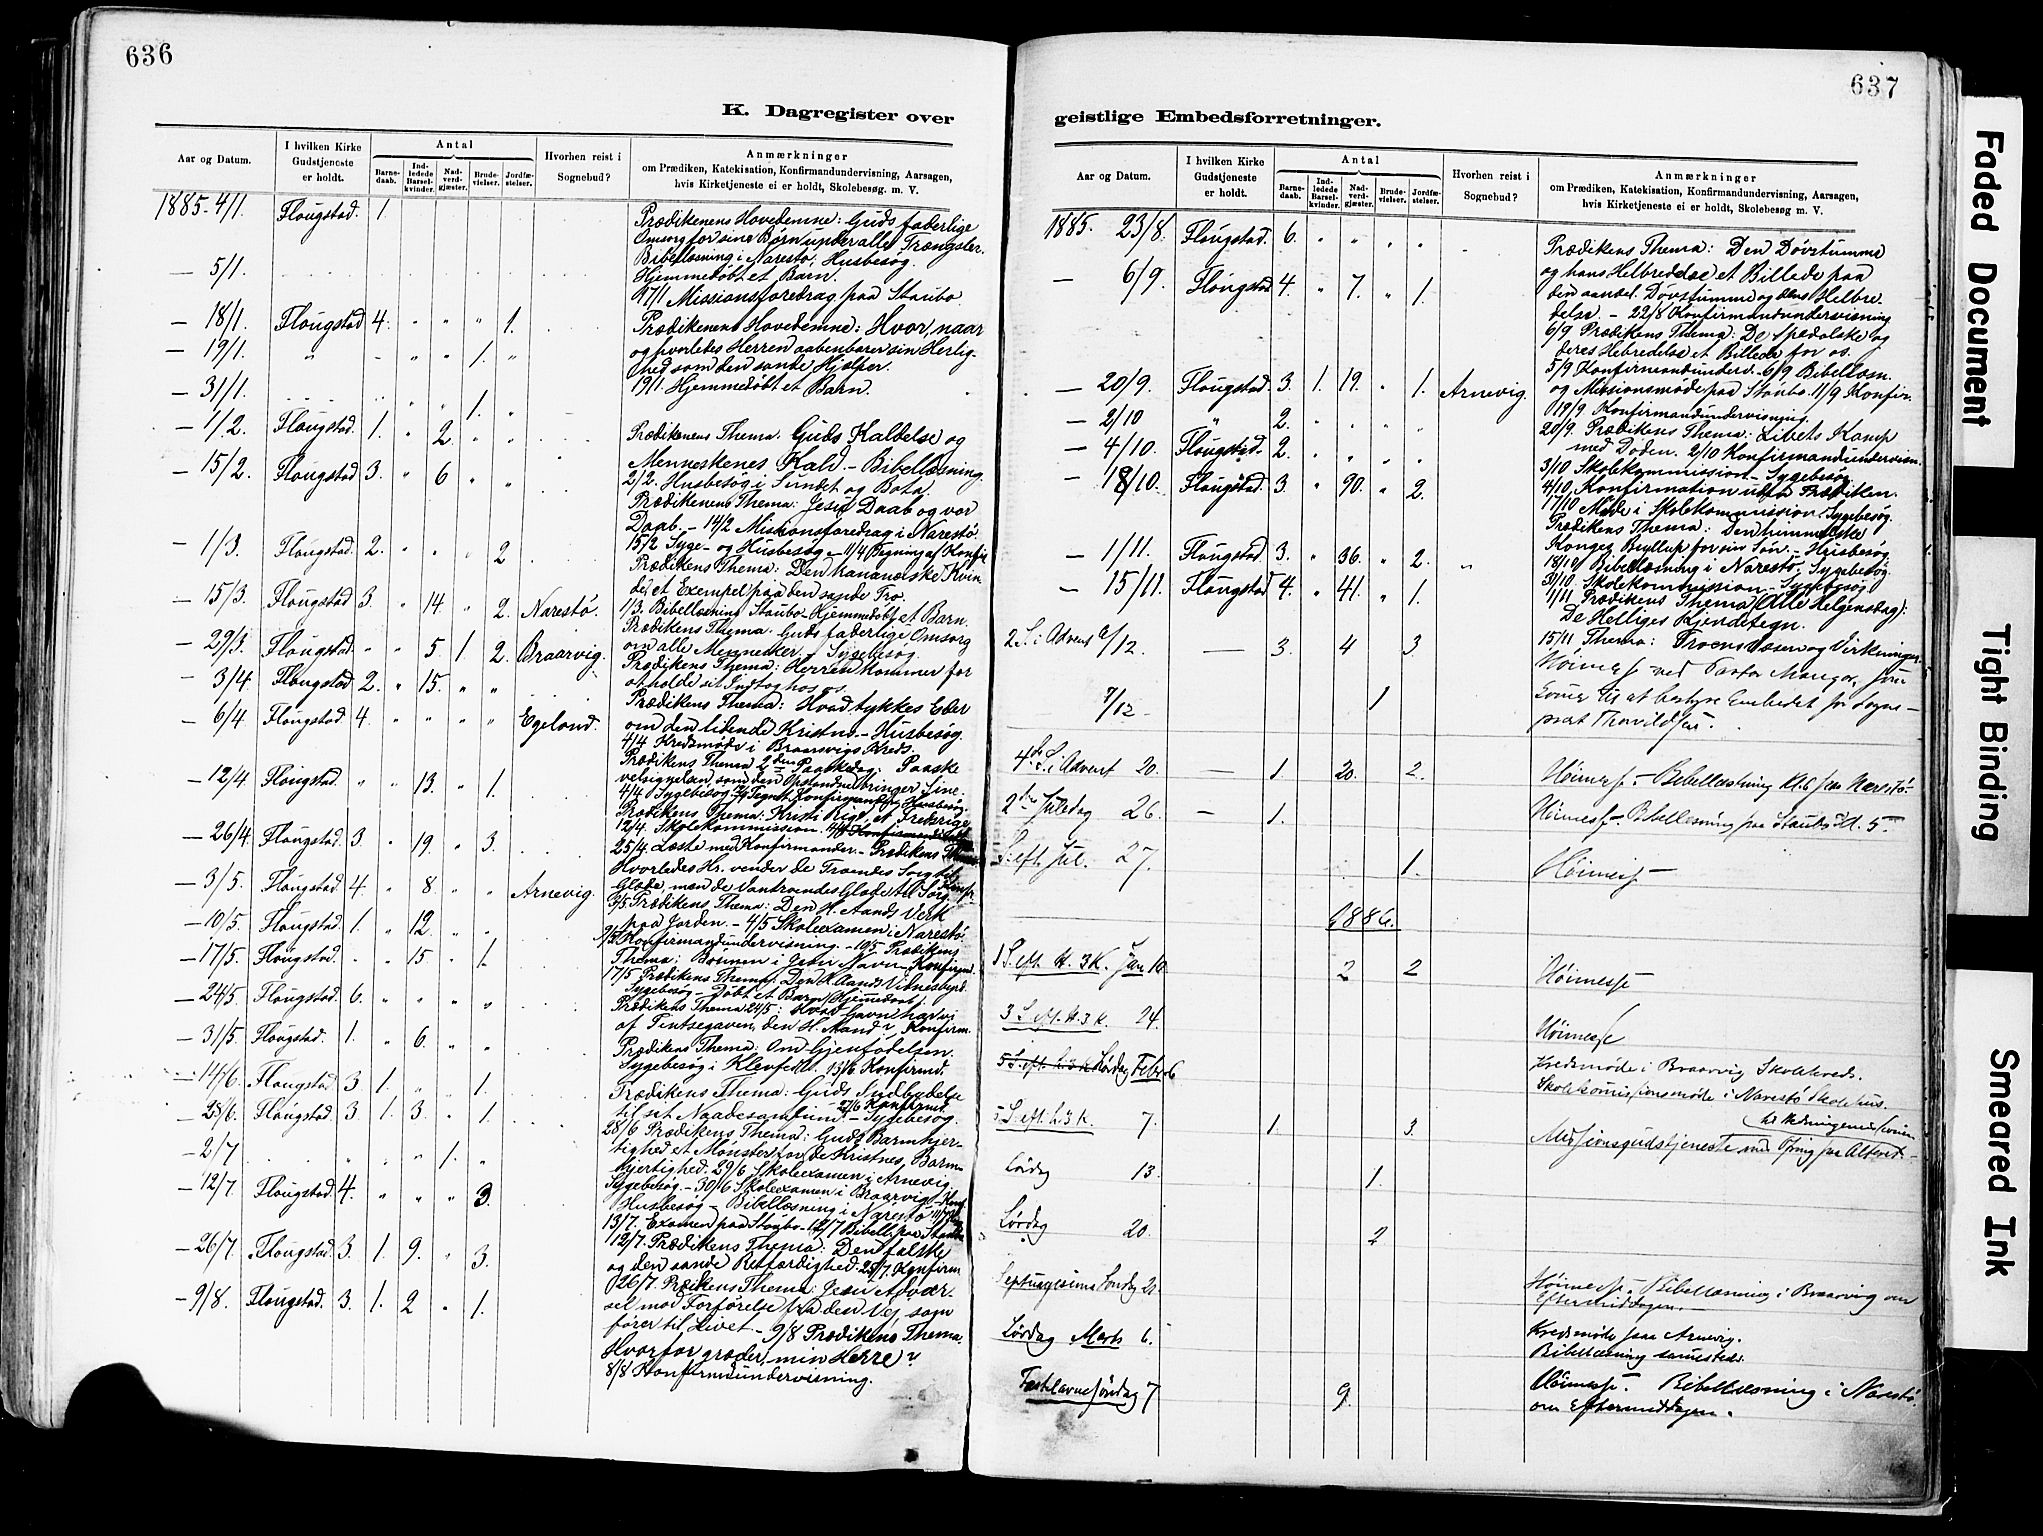 636
K. Dagregister over
Aar og Datum.
I hvilken Kirke
Gudstjeneste
er holdt.
Antal
Barne-
daab.
Ind-
ledede
Barsel-
kvinder.
Nad-
verd-
gjæster.
Brude-
vielser.
Jordfæ-
stelser.
Hvorhen reist i
Sognebud?
Anmærkninger
om Prædiken, Katekisation, Konfirmandundervisning, Aarsagen,
hvis Kirketjeneste ei er holdt, Skolebesøg m. V.
1885 - 4/1. Flougstad. 1.
Prædikenens Hovedemne: Guds faderlige
Omsorg for sine Børn under alle Trængsler.
Bibellæsning i Narestø. Husbesøg.
— 5/1.
Hjemmedøbt et Barn.
17/1 Missionsforedrag paa Staubo.
— 18/1. Flougstad 4. " " " 1.
Prædikenens Hovedemne: Hvor, naar
— 19/1. " - " " 1. "
og hvorledes Herren aabenbarer sin Herlig-
hed som den sande Hjælper.
19/1. Hjemmedøbt et Barn.
— 31/1. 1. "
— 1/2. Flougstad. 1. " 2. " "
Prædikenens Thema. Guds Kaldelse og
Menneskenes Kald. - Bibellæsning.
— 15/2. Flougstad. 3. " 6 " "
2/2. Husbesøg i Sundet og Bota.
Prædikenens Thema: Jesu Daab og vor
Daab. - 14/2 Missionsforedrag i Narestø.
15/2 Syge- og Husbesøg - 11/4 Begyning af Konfir.
— 1/3. Flougstad. 2. " " " 2
Prædikens Thema: Den kananæiske Kvin-
de, et Exempel paa den sande Tro.
— 15/3. Flougstad 3. " 14 " 2. Narestø.
1/3. Bibellæsning Staubo - Hjemmedøbt et Barn.
Prædikens Thema: Guds faderlige Omsorg
om alle Mennesker. - Sygebesøg.
— 29/3. Flougstad. " " 5. 1. 2. Braarvig.
Prædikens Thema: Herren kommer for
at holde sit Indtog hos os.
— 3/4. Flougstad 2. " 15. " "
Prædikens Thema: Hvad tykkes Eder
— 6/4. Flougstad. 4. " " " " Egeland.
om den lidende Kristus. - Husbesøg.
4/4 Kredsmøde i Braarvigs Kreds.
Prædikens Thema 2den Paaskedag: Paaske
— 12/4. Flougstad. " " 13. " 1.
velsignelsen, som den Opstandne bringer Sine.
Prædikens Thema: Kristi Rige, et Frederige
12/4. Skolekommission.
— 26/4. Flougstad. 3. " 19. " 3.
25/4. Læste med Konfirmander. - Prædikens Thema:
Hvorledes Hs. vender de Troendes Sorg til
— 3/5. Flougstad. 4. " 8. " " Arnevig.
Glæde, men de Vantroendes Glæde til Sorg.
3/5. Prædikens Thema: Den H. Aands Verk
— 10/5. Flougstad. 1. " 12. " "
paa Jorden. - 4/5 Skoleexamen i Narestø
9/5. Konfirmandundervisning. - 10/5 Prædikens
— 17/5. Flougstad. - " 15 " 1.
Thema: Bønnen i Jesu Navn - Konfirmd.
17/5 Prædikens Thema: Den H. Aands Vidnesbyrd.
— 24/5. Flougstad. 6. " " " "
Sygebesøg - Døbt et Barn (Hjemmedaab).
Prædikens Thema 24/5: Hvad Gavn har vi
af Pintsegaven, den H. Aand? Konfirm.
— 31/5. Flougstad. 1. " 6. " "
Prædikens Thema: Om Gjenfødelsen.
Sygebesøg i Klevfeld. 13/6 Konfirmd.
— 14/6. Flougstad. 3. 1. " " 1.
Prædikens Thema: Guds Indbydelse
— 28/6. Flougstad. 3. 1. 3. " 1.
til sit Naadesamfund. - 27/6 Konfirmd. Sygebesøg.
28/6 Prædikens Thema: Guds Barmhjer-
— 2/7. " " 1. "
tighed et Mønster for de Kristnes Barm-
hjertighed. 29/6 Skoleexamen i Arnevig.
— 12/7. Flougstad. 4. " " " 3.
Sygebesøg. - 30/6 Skoleexamen i Braarvig.
Husbesøg - Bibellæsning i Narestø
13/7. Examen paa Staubo -
— 26/7. Flougstad. 3. 1. 9. " 3.
12/7. Prædikens Thema: Den falske
og den sande Retfærdighed. 25/7. Konfirm
26/7. Prædikens Thema: Jesu Advar-
— 9/8. Flougstad. 3. 1. 2 " 1.
sel mod Forførelse fra den Vej, som
fører til Livet. - 9/8 Prædikens Thema.
Hvorfor græder min Herre?
8/8 Konfirmdundervisning.
637
geistlige Embedsforretninger.
Aar og Datum.
I hvilken Kirke
Gudstjeneste
er holdt.
Antal
Barne-
daab.
Ind-
ledede
Barsel-
kvinder.
Nad-
verd-
gjæster.
Brude-
vielser.
Jordfæ-
stelser.
Hvorhen reist i
Sognebud?
Anmærkninger
om Prædiken, Katekisation, Konfirmandundervisning, Aarsagen,
hvis Kirketjeneste ei er holdt, Skolebesøg m. V.
1885. 23/8. Flougstad. 6. " " " "
Prædikens Thema: Den Døvstumme
og hans Helbredelse et Billede paa
— 6/9. Flougstad 4. " 7. " 1.
den aandel. Døvstumme og dens Helbre-
delse. - 22/8 Konfirmandundervisning
6/9 Prædikens Thema: De spedalske og
deres Hebredelse et Billede for os.
5/9 Konfirmandunderv. - 6/9 Bibellæsn.
— 20/9. Flougstad. 3. 1. 19. " 1. Arnevig.
og Missionsmøde paa Staubo. 11/9 Konfir.
19/9 Konfirmandundervisning.
— 2/10 " 2. " " " "
20/9. Prædikens Thema: Livets Kamp
med Døden. 2/10 Konfirmandundervisn.
— 4/10. Flougstad. 2. " " " "
3/10 Skolekommission - Sygebesøg.
4/10. Konfirmation uden Prædiken.
— 18/10. Flougstad. 3. " 90. " 2.
17/10 Møde i Skolekommission. Sygebesøg.
Prædikens Thema: Den himmelske
Konges Bryllup for sin Søn. - Husbesøg
— 1/11. Flougstad. 3. " 36. " 2. "
18/10 Bibellæsning i Narestø. Sygebesøg.
31/10. Skolekommission - Sygebesøg
— 15/11. Flougstad 4. " 41. " 1.
1/11. Prædikens Thema (Alle Helgensdag):
De Helliges Kjendetegn.
15/11 Thema: Troens Væsen og Virkninger.
2 S. i Advent 6/12. — 3. 4 3.
Høimesse ved Pastor Mangor, som
7/12 - 1
kommer til at bestyre Embedet for Sogne-
præst Thorvildsen.
4de S. i Advent 20. — 1. 20. 2.
Høimesse. - Bibellæsning Kl. 6 paa Narestø.
2den Juledag 26. — 1.
Høimesse. Bibellæsning paa Staubo Kl. 5.
S. eft. Jul. 27. 1.
Høimesse
1886.
1 S. eft. H. 3 K. Jan 10. 2 2
Høimesse
3 S. eft. H. 3 K. 24.
Høimesse
5 S. eft. h. 3 K Lørdag Febr 6
Kredsmøde i Braarvig Skolekreds.
Skolekommissionsmøde i Narestø Skolehus.
5 S. eft. h. 3 K. 7. 1. 3.
Missionsgudstjeneste med Ofring paa Alteret.
Lørdag 13. 1.
Lørdag 20. 2
Septuagesima Søndag 21.
Høimesse. Bibellæsning i Braarvig om
Eftermiddagen.
Lørdag Marts 6.
Kredsmøde paa Arnevig.
Bibellæsning sammesteds.
Fastelavnssøndag 7 9.
Høimesse. Bibellæsning i Narestø
om Eftermiddagen.
Faded Document
Tight Binding
Smeared Ink